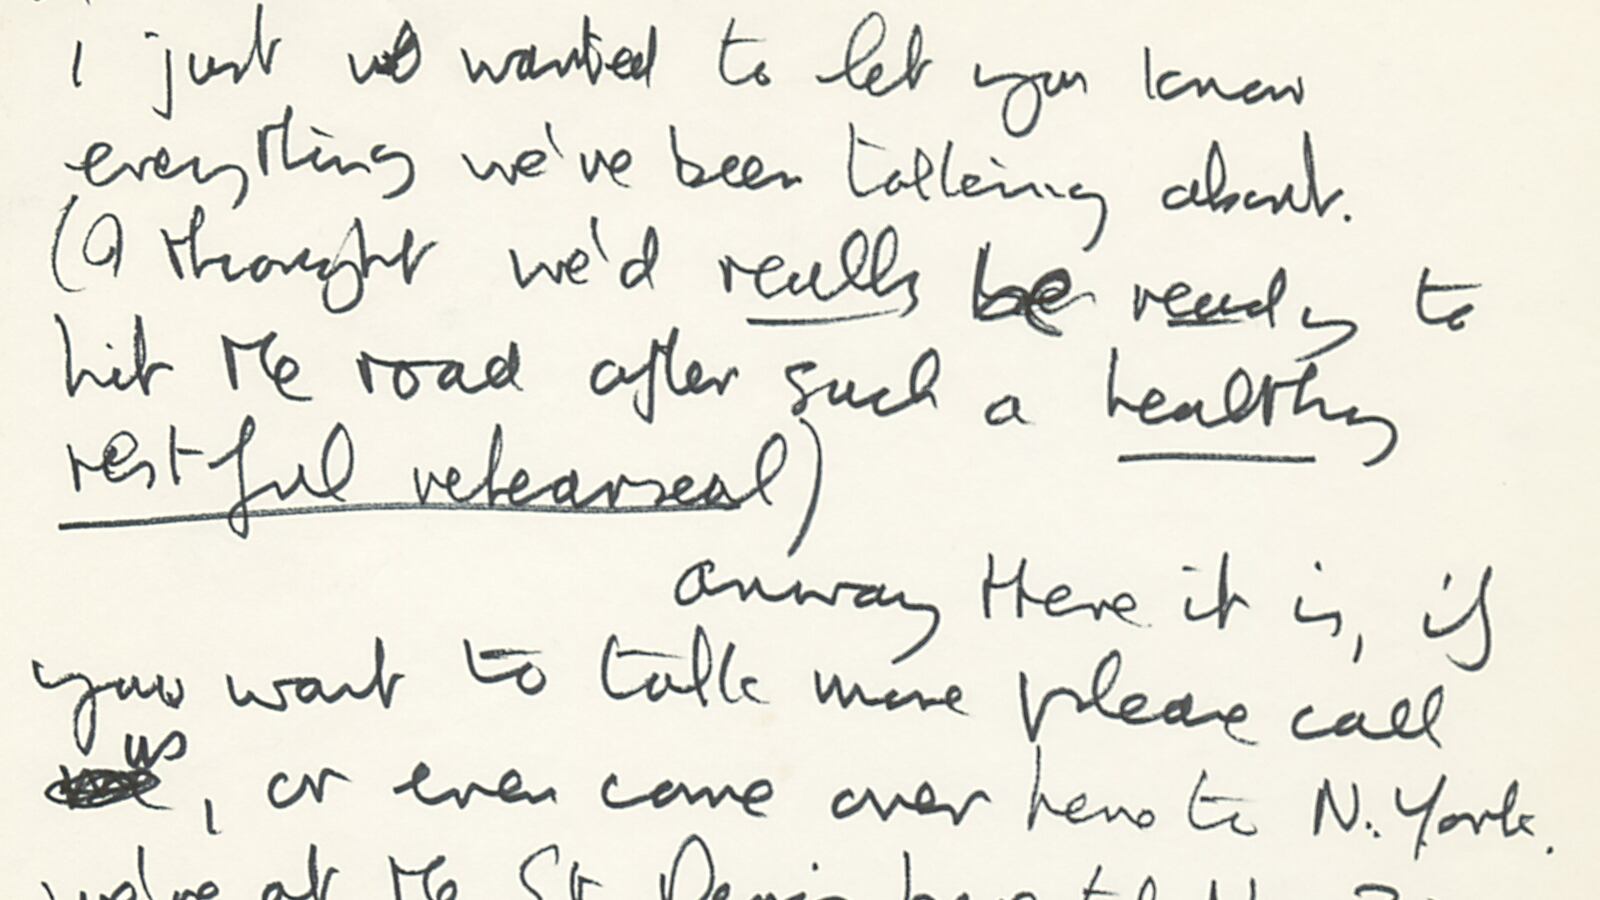 I just wanted to let you know
everything we've been talking about.
(I thought we'd really be ready to
hit the road after such a healthy
restful rehearseal)
anway Here it is, if
you want to talk more please call
us, or even come over here to N. York.
we're at the St Regis hotel